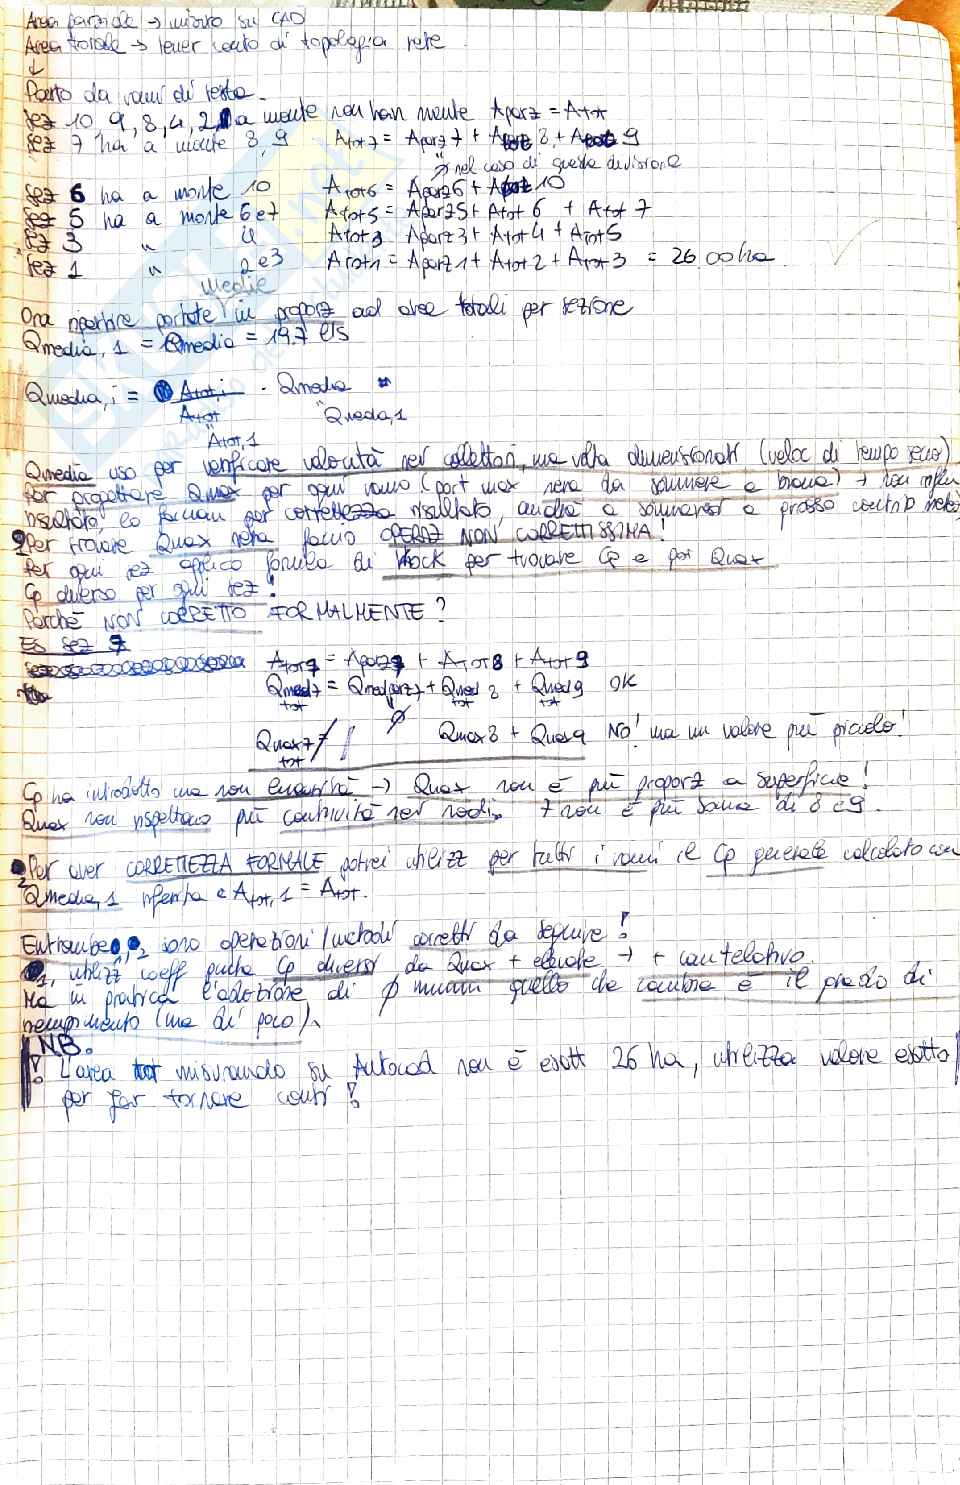 Area parziale → misuro su CAD
Area totale → tener conto di topologia rete
↓
Parto da rami di testa
sez 10, 9, 8, 4, 2 a monte non han niente Aparz = Atot
sez 7 ha a monte 8, 9 Atot7 = Aparz7 + Atot 8 + Atot 9
nel caso di questa divisione
sez 6 ha a monte 10 Atot6 = Aparz6 + Atot 10
sez 5 ha a monte 6 e 7 Atot5 = Aparz5 + Atot 6 + Atot 7
sez 3 " 4 Atot3 Aparz3 + Atot4 + Atot5
sez 1 " 2 e 3 Atot1 = Aparz1 + Atot2 + Atot3 = 26.00 ha
medie
Ora ripartire portate in proporz ad aree totali per sezione
Qmedia,1 = Qmedia = 19,7 l/s
Qmedia,i = Atot,i · Qmedia
Atot "Qmedia,1
"Atot,1
Qmedia uso per verificare velocità nei collettori, una volta dimensionati (veloc di tempo secco)
per progettare Qmax per ogni ramo (port max nera da sommare a bianca) →
risultato, lo facciam per correttezza risultato, andrà a sommarsi a grosso contrib
1 Per trovare Qmax nera faccio OPERAZ NON CORRETTISSIMA!
Per ogni sez applico formula di per trovare Cp e poi Qmax
Cp diverso per ogni sez!
Perché NON CORRETTO FORMALMENTE?
Es sez 7
Atot7 = Aparz7 + Atot8 + Atot9
Qmed7 = Qmedparz7 + Qmed 8 + Qmed9 OK
tot tot tot
Qmax7 ≠ Qmax8 + Qmax9 NO! ma un valore più piccolo!
tot
Cp ha introdotto una non linearità → Qmax non è più proporz a superficie!
Qmax non rispettano più continuità nei nodi, 7 non è più somma di 8 e 9.
2 Per aver CORRETTEZZA FORMALE potrei utilizz per tutti i rami il Cp generale calcolato con
Qmedia,1 riferita a Atot,1 = Atot.
Entrambe 1, 2 sono operazioni/metodi corretti da seguire!
1, utilizz coeff punta Cp diversi da Qmax + elevate → + cautelativo.
Ma in pratica l'adozione di ϕ quello che cambia è il grado di
riempimento (ma di poco).
NB.
! L'area tot misurando su Autocad non è esatt 26 ha, utilizza valore esatto
per far tornare conti!